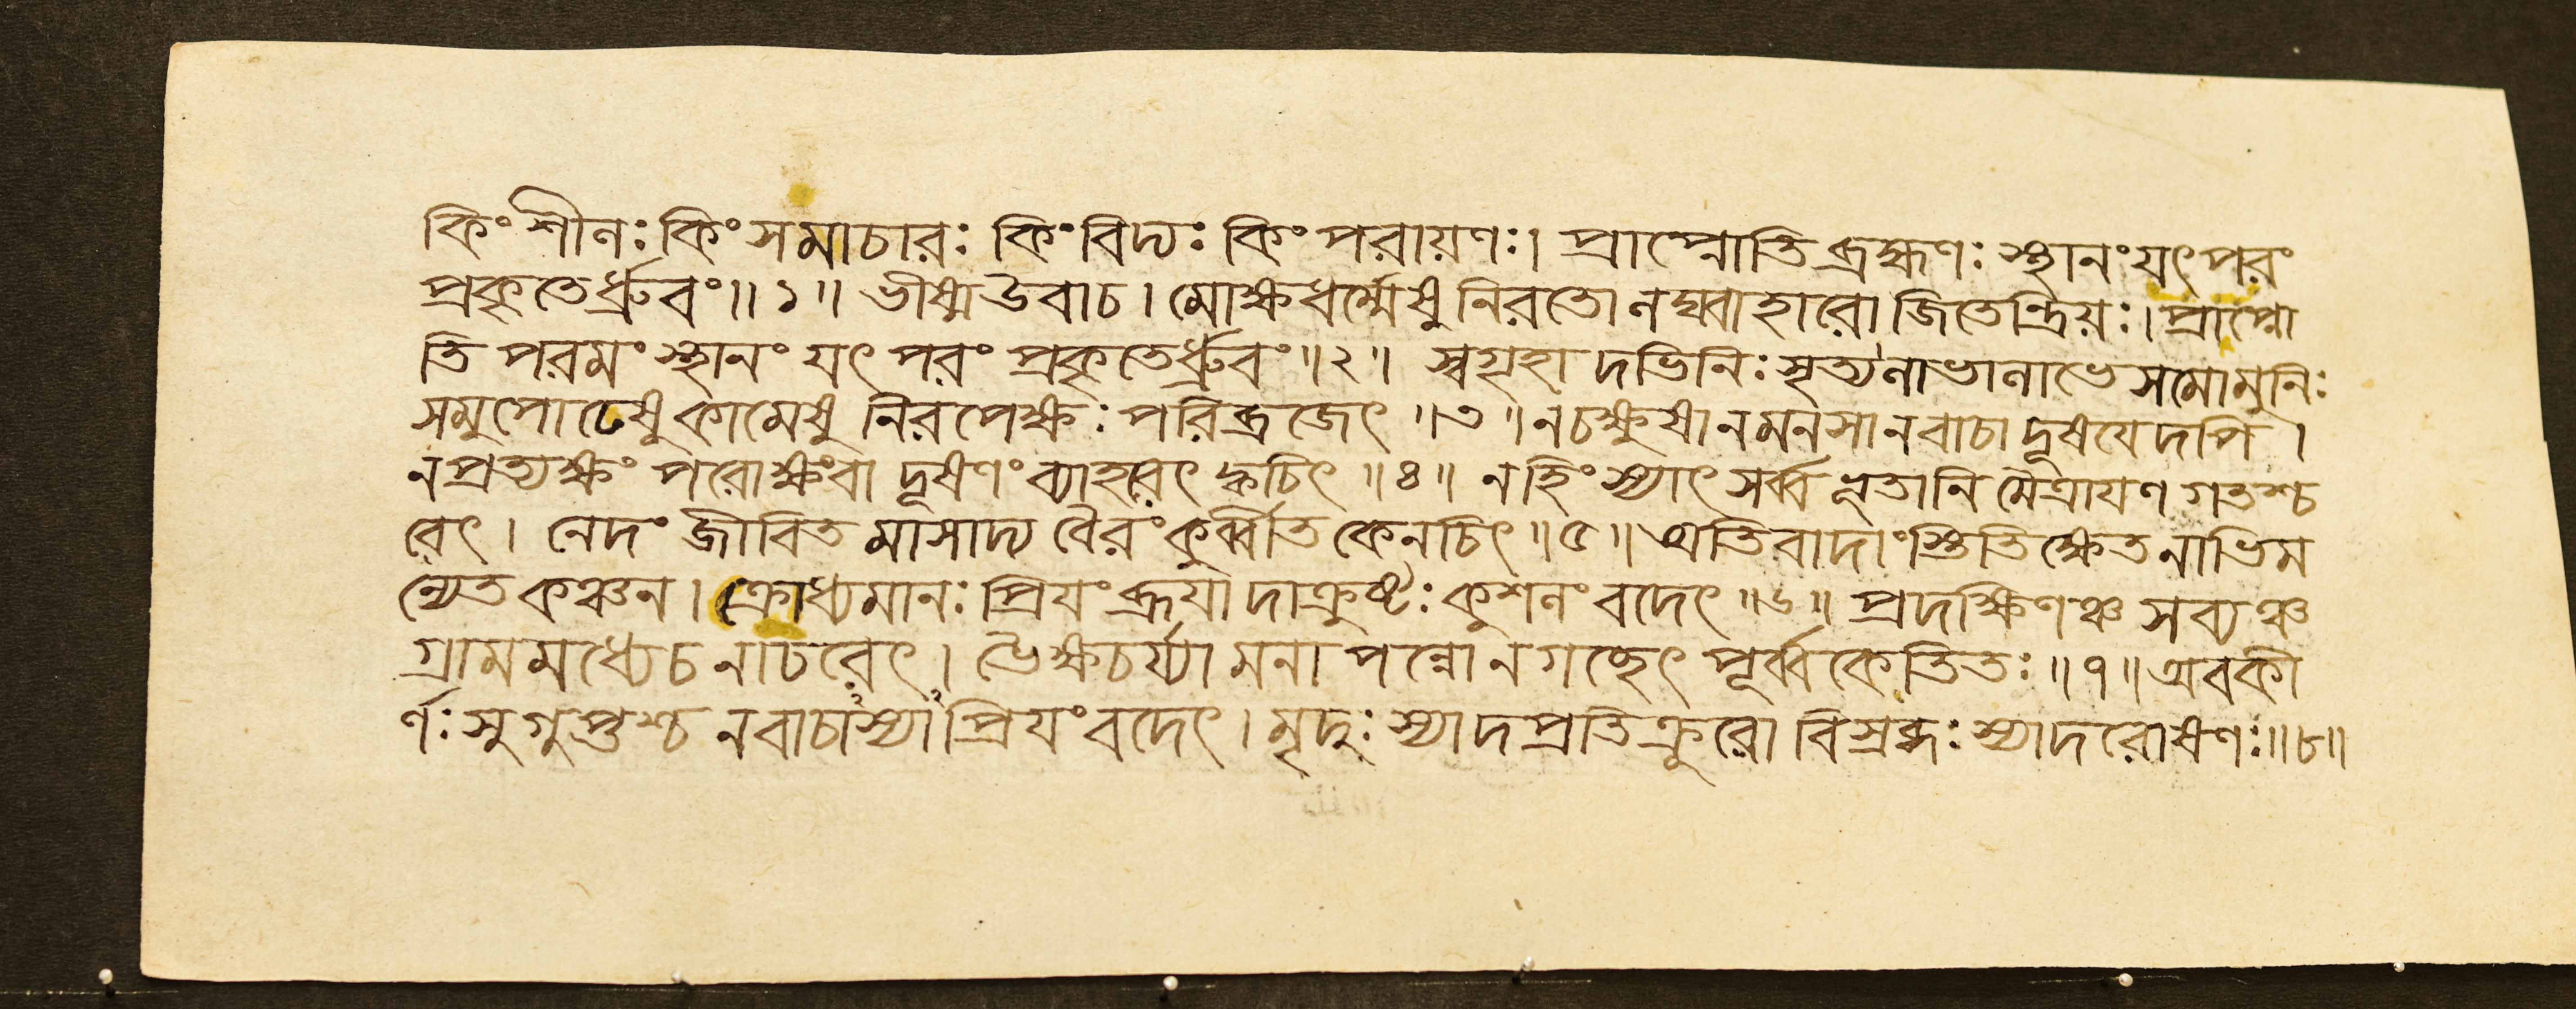 কিংশীলঃ কিংসমাচারঃ কিংবিদ্যঃ কিংপরায়ণঃ। প্রাপ্নোতি ব্রহ্মণঃ স্থানং যৎ পরং
প্রকৃতের্ধ্রুবং॥১॥ ভীষ্মউবাচ। মোক্ষধর্ম্মেষু নিরতো লঘ্বাহারো জিতেন্দ্রিয়ঃ। প্রাপ্নো
তি পরমং স্থানং যৎ পরং প্রকৃতের্ধ্রুবং॥২। স্বগৃহাদভিনিঃসৃত্য লাভালাভে সমোমুনিঃ
সমুপোঢেষু কামেষু নিরপেক্ষঃ পরিব্রজেৎ॥৩॥ নচক্ষুষা নমনসা নবাচা দূষয়েদপি।
নপ্রত্যক্ষং পরোক্ষংবা দূষণং ব্যাহরেৎ ক্বচিৎ॥৪॥ নহিংস্যাৎ সর্ব্বভূতানি মৈত্রায়ণ গতশ্চ
রেৎ। নেদং জীবিতমাসাদ্য বৈরংকুর্ব্বীত কেনচিৎ॥৫॥ অতিবাদাংস্তিতিক্ষেত নাভিম
ন্যেত কঞ্চন। ক্রোধ্যমানঃ প্রিয়ং ব্রূয়াদাক্রুষ্টঃ কুশলং বদেৎ॥৬॥ প্রদক্ষিণঞ্চ সব্যঞ্চ
গ্রামমধ্যেচ নাচরেৎ। ভৈক্ষচর্য্যামনাপন্নো নগচ্ছেৎ পূর্ব্বকেতিতঃ॥৭॥ অবকী
র্ণঃ সুগুপ্তশ্চ নবাচাস্যাপ্রিয়ং বদেৎ। মৃদুঃ স্যাদপ্রতিক্রূরো বিস্রব্ধঃ স্যাদরোষণঃ॥৮॥